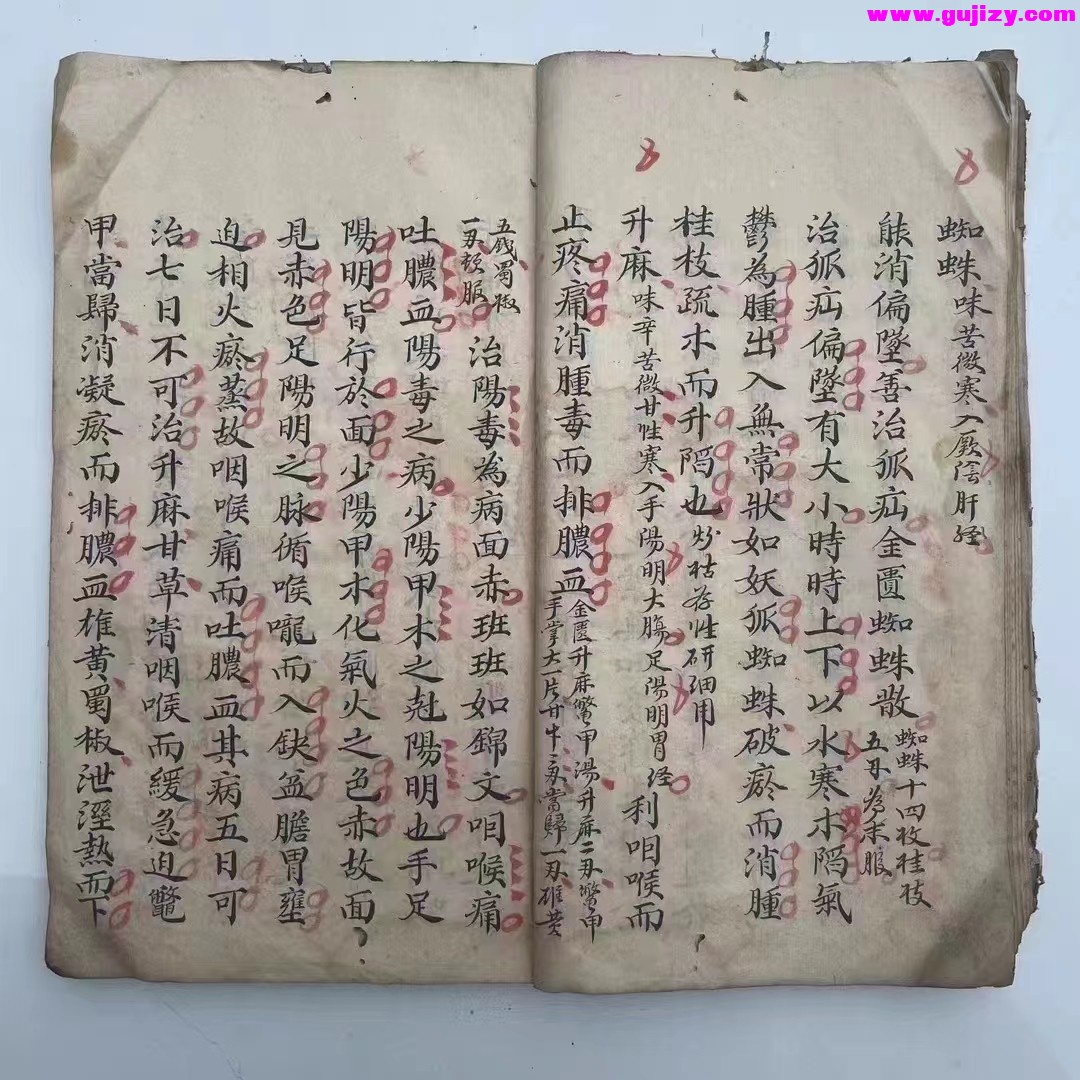 www.gujizy.com
蜘蛛味苦微寒入厥陰肝経
能消偏墜善治狐疝金匱蜘蛛散蜘蛛十四枚桂枝
五刄為末服
治狐疝偏墜有大小時時上下以水寒木陷氣
鬱為腫出入無常狀如妖狐蜘蛛破瘀而消腫
桂枝疏木而升陷也炒枯存性研細用
升麻味辛苦微甘性寒入手陽明大膓足陽明胃経利咽喉而
止疼痛消腫毒而排膿血金匱升麻鱉甲湯升麻二刄鱉甲
手掌大一片甘艹一刄當歸一刄雄黄
五錢蜀椒
一刄頓服
治陽毒為病面赤班班如錦文咽喉痛
吐膿血陽毒之病少陽甲木之尅陽明也手足
陽明皆行於面少陽甲木化氣火之色赤故面
見赤色足陽明之脉循喉嚨而入缺盆膽胃壅
迫相火瘀蒸故咽喉痛而吐膿血其病五日可
治七日不可治升麻甘草清咽喉而緩急迫鱉
甲當歸消凝瘀而排膿血雄黃蜀椒泄溼熱而下